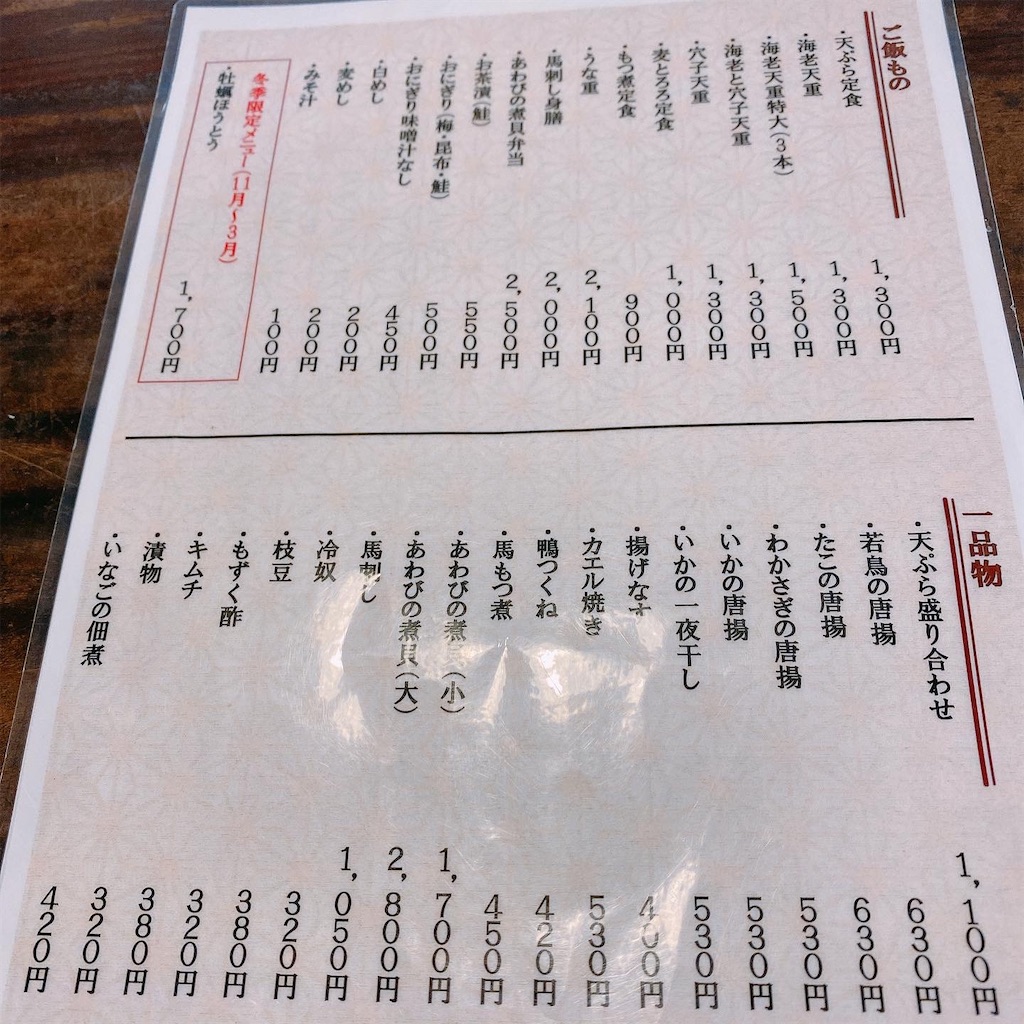 ご飯もの
・天ぷら定食 1,300円
・海老天重 1,300円
・海老天重特大(3本) 1,500円
・海老と穴子天重 1,300円
・穴子天重 1,300円
・麦とろろ定食 1,000円
・もつ煮定食 900円
・うな重 2,100円
・馬刺し身膳 2,000円
・あわびの煮貝弁当 2,500円
・お茶漬(鮭) 550円
・おにぎり(梅・昆布・鮭) 500円
・おにぎり味噌汁なし 450円
・白めし 200円
・麦めし 200円
・みそ汁 100円
冬季限定メニュー(11月~3月)
・牡蠣ほうとう 1,700円
一品物
・天ぷら盛り合わせ 1,100円
・若鳥の唐揚 630円
・たこの唐揚 630円
・わかさぎの唐揚 530円
・いかの唐揚 530円
・いかの一夜干し 530円
・揚げなす 400円
・カエル焼き 530円
・鴨つくね 420円
・馬もつ煮 450円
・あわびの煮貝(小) 1,700円
・あわびの煮貝(大) 2,800円
・馬刺し 1,050円
・冷奴 320円
・枝豆 380円
・もずく酢 320円
・キムチ 380円
・漬物 320円
・いなごの佃煮 420円